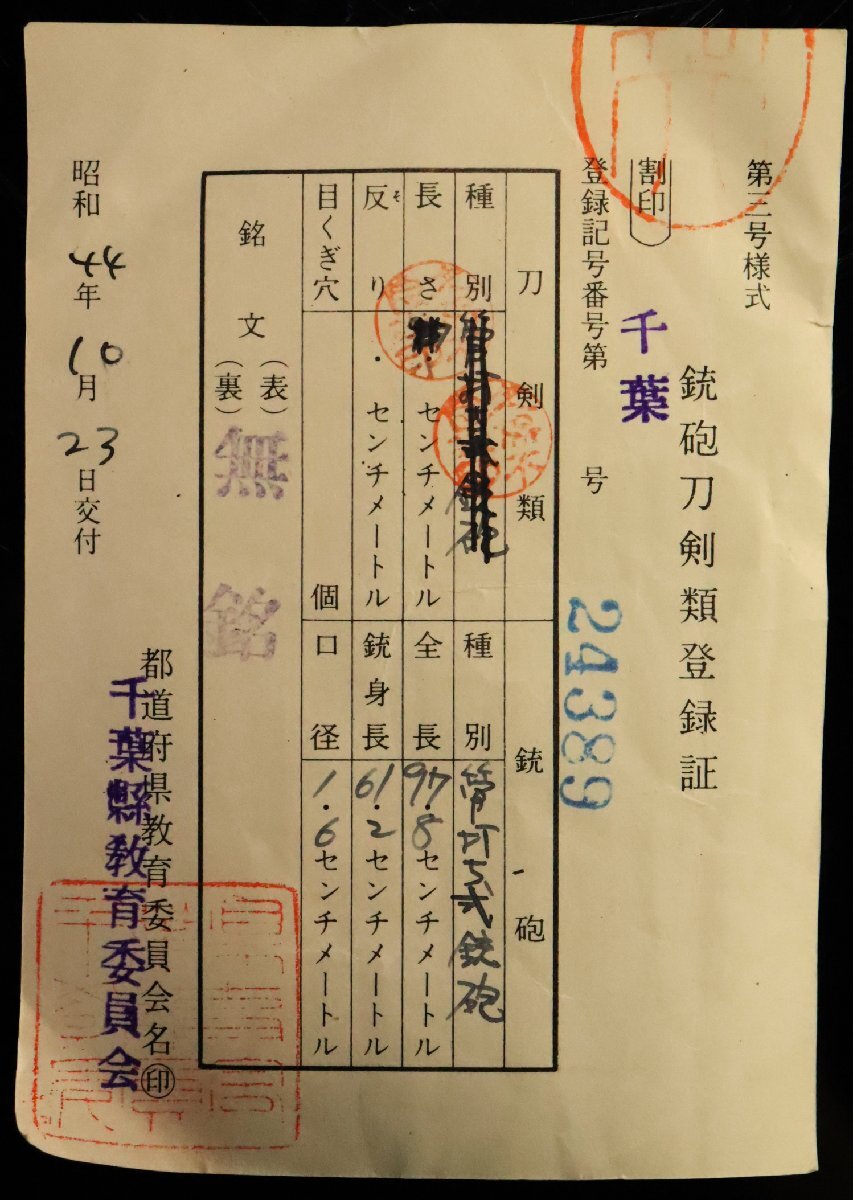 第三号様式
銃砲刀剣類登録証
割印
千葉
登録記号番号第 号
24389
刀剣類
種別 管打式銃砲
長さ ・ センチメートル
反り ・ センチメートル
目くぎ穴 個
銃砲
種別 管打式銃砲
全長 97・8センチメートル
銃身長 61・2センチメートル
口径 1・6センチメートル
銘文(表)
(裏)
無銘
昭和44年10月23日交付
都道府県教育委員会名㊞
千葉縣教育委員会